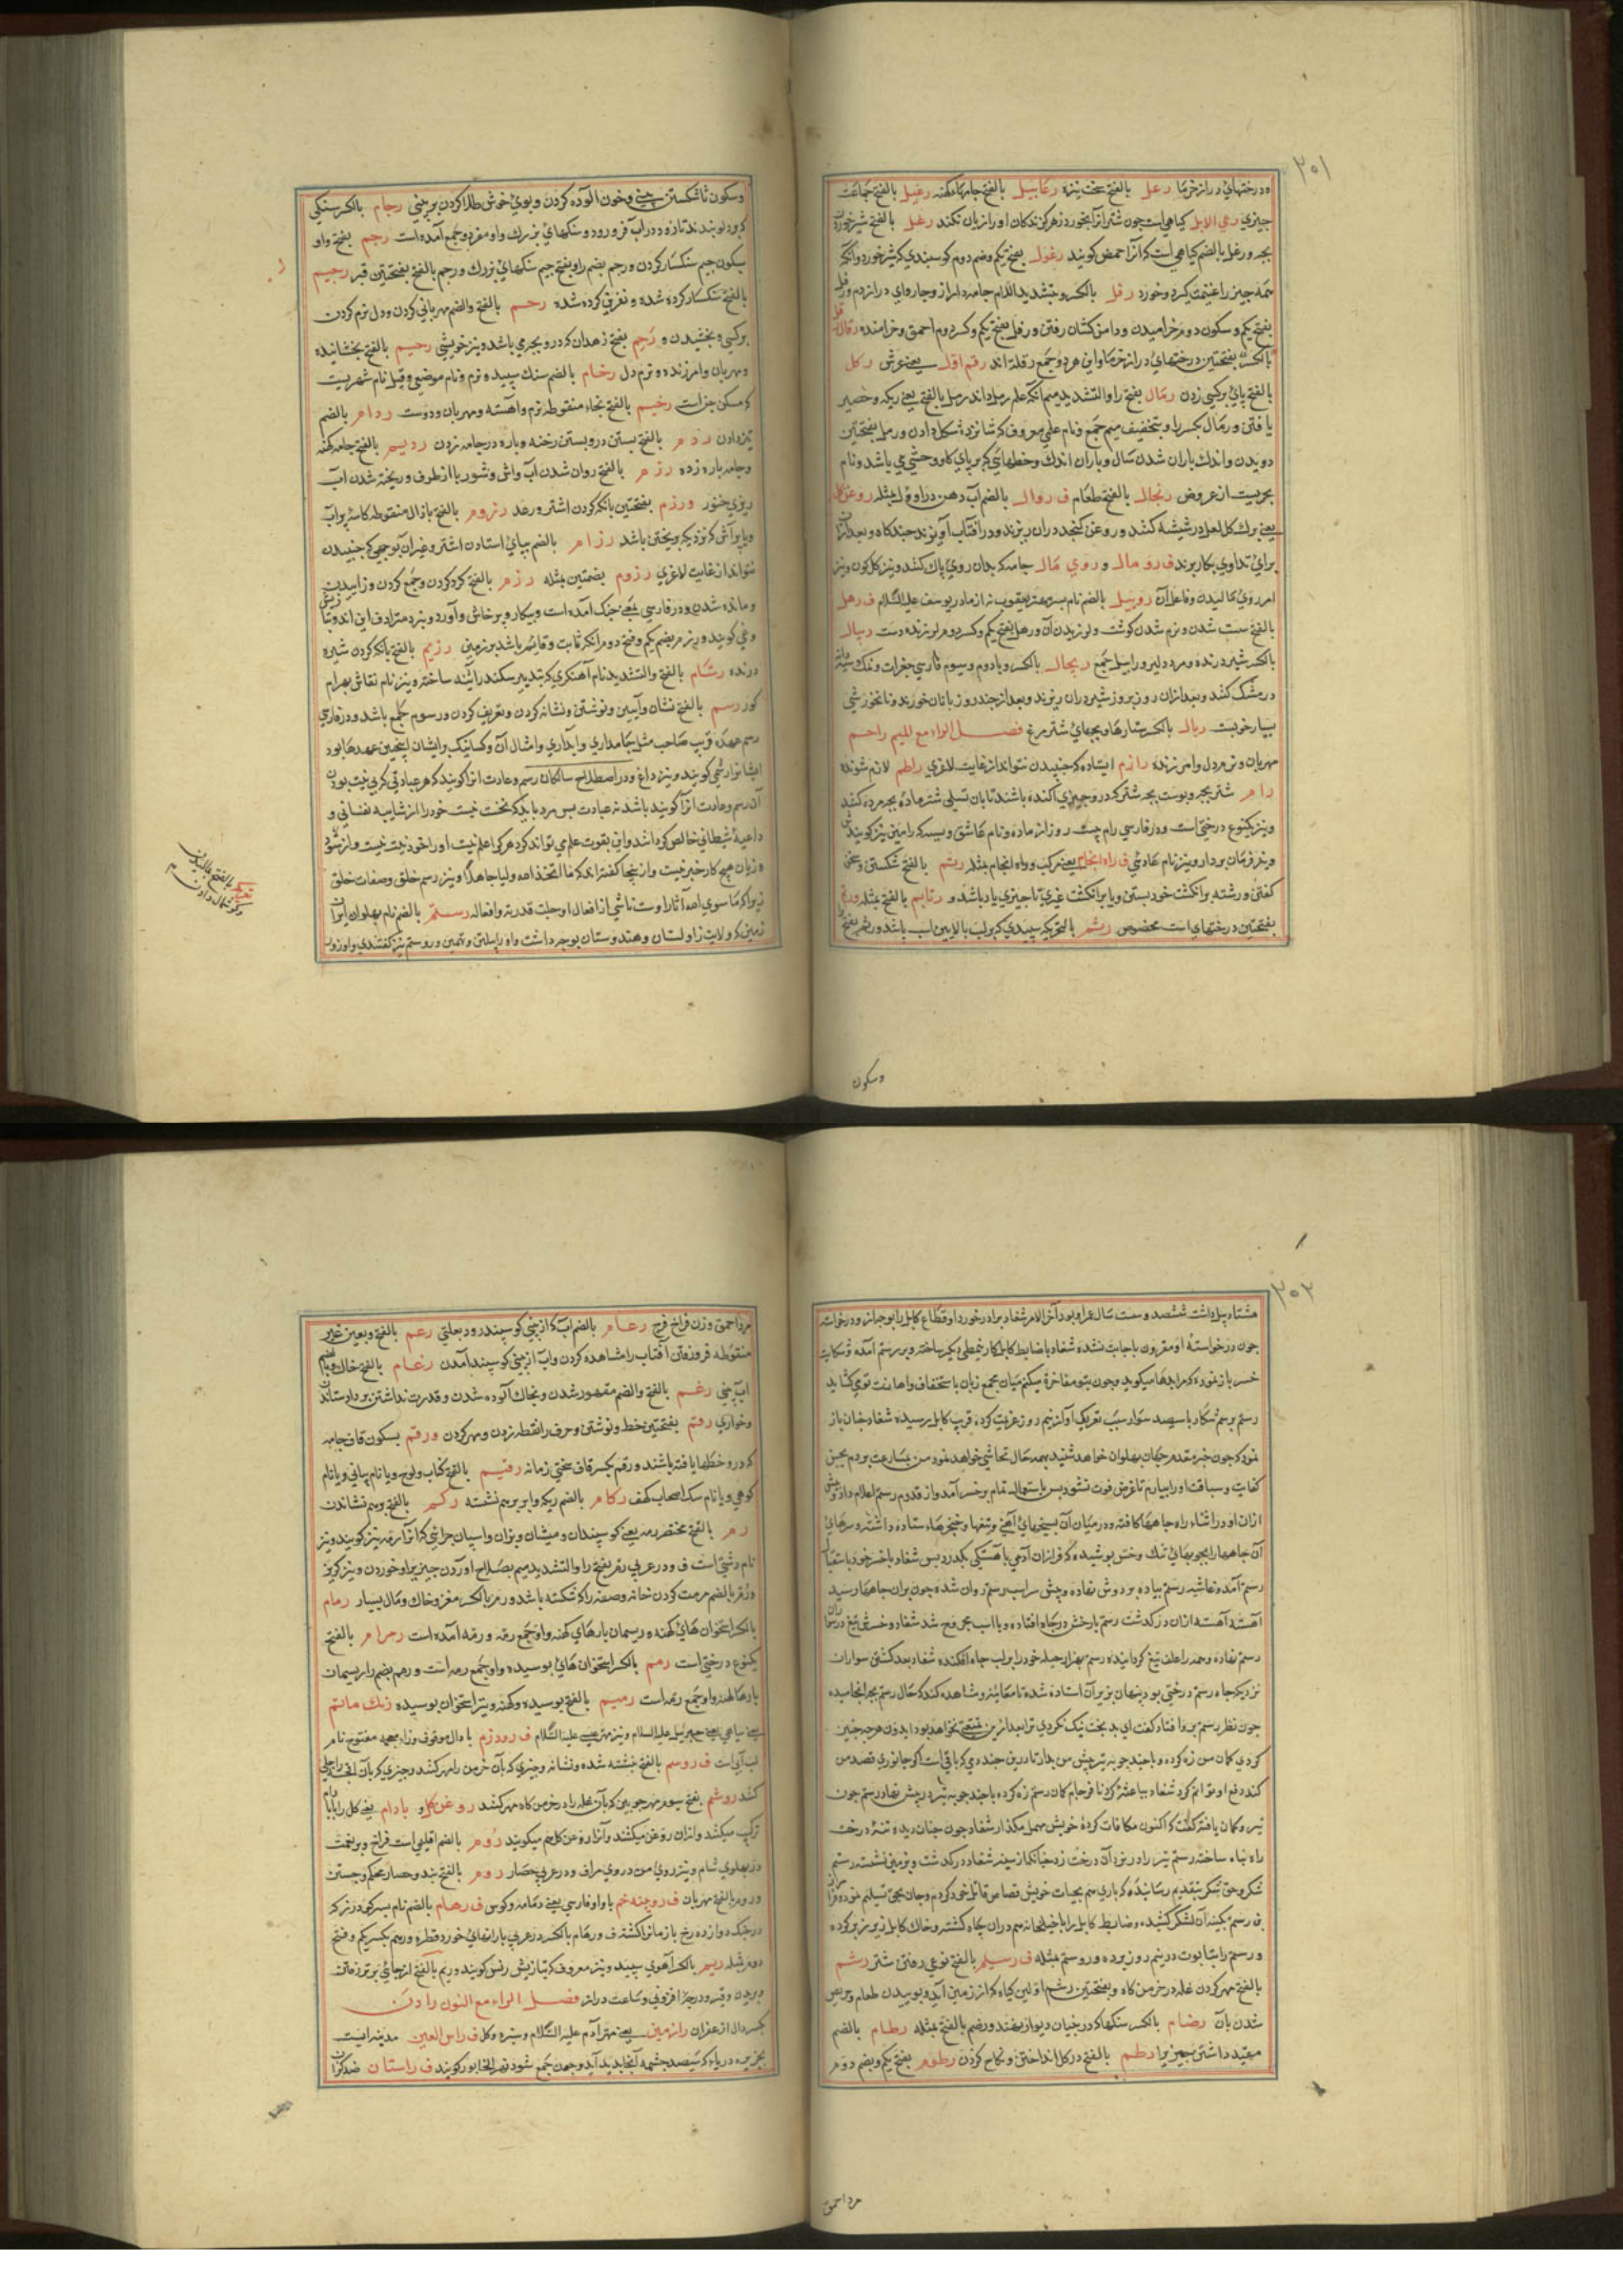 ٣٠١
درختهای دراز خرما رعل بالفتح سخت نیزه رعابیل بالفتح جامهٔ کهنه رعیل بالفتح جماعت
چیزی رعی الابل کیاهی است چون شتر از آن بخورد زهر کزندکان او را زیان نکند رغل بالفتح شیر خوردن
بچه ورغل بالضم کیاهی است که آنرا حمض کویند رغول بفتح یکم وضم دوم کوسبندی که شیر خورد وانکه
همه چیز را غنیمت کیرد وخورد رفل بالکسر وتشدید اللام جامه دراز وچاروای دراز دم ورفل
بفتح یکم وسکون دوم خرامیدن ودامن کشان رفتن ورفل بفتح یکم وکسر دوم احمق وخرامنده رقال
بالکسر بفتحتین درختهای دراز خرما واین هر دو جمع رقلة اند رقم اول یعنی عرش رکل
بالفتح پای برکسی زدن رمال بفتح را والتشدید میم انکه علم رمل داند رمل بالفتح یعنی ریک وحصیر
یافتن ورمال بکسر را وبتخفیف میم جمع ونام علمی معروف که شانزده شکل دارد ورمل بفتحتین
دویدن واندک باران شدن سال وباران اندک وخطهای که بر پای کاو وحشی می باشد ونام
بحریست از عروض رنجال بالفتح طعام ف روال بالضم آب دهن در او ول مثله روغن کل
یعنی برک کل لعل در شیشه کنند وروغن کنجد دران بریزند ودر افتاب آویزند چندکاه وبعد ازان
برای تداوی بکار برند ف رو مال و روی مال جامه که بدان روی پاک کنند ونیز کلکون ونیز
امر روی مالیدن وفاعل آن روبیل بالضم نام پسر مهتر یعقوب نه از مادر یوسف علیه السلام ف رهل
بالفتح سست شدن ونرم شدن کوشت ولرزیدن آن ورهل بفتح یکم وکسر دوم لرزنده دست ریبال
بالکسر شیر درنده ومرد دلیر ورابیل جمع ریچال بالکسر وبا دوم وسیوم فارسی جغرات ونمک
در مشک کنند وبعد ازان روز بروز شیر دران ریزند وبعد از چند روز با نان خورند ونانخورشی
بسیار خوبست ریال بالکسر ستارها وبچهای شتر مرغ فصل الراء مع المیم راحم
مهربان ونرم دل وامرزنده رازم ایستاده که جنبیدن نتواند از غایت لاغری راطم لازم شونده
رام شتر بچه وپوست بچه شتر که درو چیزی آکنده باشند تا بان تسلی شتر ماده بچه مرده کنند
ونیز یکنوع درختی است ودر فارسی رام بیست روز از ماه ونام عاشق ویسه که رامین نیز کویندش
ونیز فرمان بردار ونیز نام عادتی ف راه انجام یعنی مرکب ووراه انجام مثله رتم بالفتح شکستن وسخن
کفتن ورشته بر انکشت خود بستن ویا بر انکشت غیری تا چیزی یاد باشد و رتایم بالفتح مثله ورتم
بفتحتین درختهای است مخصوص رثم بالتحریک سپیدی که بر لب بالایین اسپ باشد ورثم بفتح
وسکون
وسکون ثا شکستن بینی وخون آلوده کردن وبوی خوش طلا کردن بر بینی رجام بالکسر سنکی
که بدلو بندند تا زود در آب فرو رود وسنکهای بزرک واو مفرد وجمع آمده است رجم بفتح واو
سکون جیم سنکسار کردن ورجم بضم را وبفتح جیم سنکهای بزرک ورجم بالفتح بفتحتین قبر رجیم
بالفتح سنکسار کرده شده ونفرین کرده شده رحم بالفتح والضم مهربانی کردن ودل نرم کردن
برکسی وبخشیدن و رحم بفتح زهدان که درو بچه می باشد ونیز خویشی رحیم بالفتح بخشاینده
ومهربان وامرزنده ونرم دل رخام بالضم سنک سپید ونرم ونام موضعی وقیل نام شهریست
که مسکن جن است رخیم بالفتح بخاء منقوطه نرم واهسته ومهربان ودوست ردام بالضم
تیز دادن ردم بالفتح بستن در وبستن رخنه وپاره در جامه زدن ردیم بالفتح جامه کهنه
وجامه پاره زده رذم بالفتح روان شدن آب واش وشوربا از ظرف وریخته شدن آب
ریزی خنور ورزم بفتحتین بانک کردن اشتر ورعد رذوم بالفتح با ذال منقوطه کاسه پر آب
ویا پر آش که نزدیک بریختن باشد رزام بالضم بپای استادن اشتر وغیر ان بوجهی که جنبیدن
نتواند از غایت لاغری رزوم بضمتین مثله رزم بالفتح کرد کردن وجمع کردن وزاییدن
ومانده شدن ودر فارسی یعنی جنک آمده است وپیکار وپرخاش وآورد ونبرد مترادف این اند وبتازیش
وغی کویند ورزم بضم یکم وفتح دوم انکه ثابت وقایم باشد بر زمین رزیم بالفتح بانک کردن شیر
درنده رسام بالفتح والتشدید نام آهنکری که بتدبیر سکندر آیینه ساخته ونیز نام نقاش بهرام
کور رسم بالفتح نشان وآیین ونوشتن ونشانه کردن وتعریف کردن ورسوم جمع باشد ودر فارسی
رسم عهده قریب صاحب مثل جامداری وابداری وامثال آن وکسانیکه برایشان اینچنین عهدها بود
ایشانرا رسمی کویند ونیز داغ ودر اصطلاح سالکان رسم وعادت انرا کویند که هر عبادتی که بی نیت بود
آن رسم وعادت انرا کویند باشد نه عبادت پس مرد باید که نخست نیت خود را از شایبه نفسانی و
داعیهٔ شیطانی خالص کرداند واین بقوت علم می تواند کرد هر کرا علم نیست او را خود نیت نیست واز سود
وزیان هیچ کار خبر نیست واز ینجا کفته اند که ما اتخذ الله ولیا جاهلا ونیز رسم خلق وصفات خلق
زیرا که ما سوی الله آثار اوست ناشی از افعال او جلت قدرته وافعاله رستم بالضم نام پهلوان ایران
زمین که ولایت زاولستان وهندوستان بوجه داشت واو را پیلتن وتهمتن وروستم نیز کفتندی واو زور
٣٠٢
هشتاد پیل داشت ششصد وست سال عمر او بود آخر الامر شغاد برادر خورد او قطاع کابل را بوجه از وی درخواسته
چون درخواستهٔ او مقرون باجابت نشده شغاد با ضابط کابل کار نمطی دیکر ساخته وبر رستم آمده وشکایت
خسر باز نموده که مرا بدها میکوید وچون بتو مفاخرة میکنم میان مجمع زبان باستخفاف واهانت تو می کشاید
رستم برسم شکار با سیصد سوار سبب تعریک آوازیم روز عزیمت کرده قریب کابل رسیده شغاد خبان باز
نمود که چون خبر مقدم جهان پهلوان خواهد شنید بهمه حال تحاشی خواهد نمود من بمسارعت بردم بحسن
کفایت وسباقت او را بیارم تا غرض فوت نشود پس باستعجال تمام بر خسر آمد واز قدوم رستم اعلام داد وپیش
ازان او در اثناء راه جاهها کافته ودر میان آن سیخهای آهنی وتیغها وخنجرها ستاده داشته وسرهای
آن جاهها را بچوبهای تنک وخس پوشیده که فرازان آدمی باهستکی بکذرد پس شغاد با خسر خود باستقبال
رستم آمده وغاشیه رستم پیاده بر دوش نهاده وپیش اسپ رستم روان شده چون بران جاهها رسید
اهسته آهسته ازان درکذشت رستم با رخش درجاه افتاده وبا اسپ مجروح شد شغاد وخسرش تیغ در سواران
رستم نهاده وهمه را علف تیغ کردانیده رستم بهزار حیله خود را بر لب جاه افکنده شغاد بعد کشتن سواران
نزدیک جاه رستم درختی بود پنهان بزیر آن استاده شده تا معاینه ومشاهده کند که حال رستم بچه انجامیده
چون نظر رستم برو افتاد کفت ای بد بخت نیک نکردی ترا بعد ازین تمتعی نخواهد بود ایدون هرچه چنین
کردی کمان من زه کرده وبا چند چوبه تیر پیش من بدار تا درین چند دمی که باقی است اکر جانوری قصد من
کند دفع او توانم کرد شغاد بیا عثیکه نافرجام کمان رستم زه کرده با چند چوبه تیر در پیش نهاد رستم چون
تیر وکمان یافته کفت که اکنون مکافات کردهٔ خویش مهمل مکذار شغاد چون چنان دیده تنهٔ درخت
راه پناه ساخته رستم تیر را در بزد آن درخت زد چنانکه از سینه شغاد درکذشت وبر زمین نشسته رستم
شکر وحق شکر بتقدیم رسانیده که باری هم بحیات خویش قصاص قاتل خود کردم وجان بحق تسلیم نموده
پس رستم بکینهٔ آن لشکر کشیده وضابط کابل را با خیلخانه هم دران جاه کشته وخاک کابل زیر وزبر کرده
ورستم را بتابوت در نیم روز برده وروستم مثله ف رسیم بالفتح نوعی رفتن شتر رشم
بالفتح مهر کردن غله در خرمن کاه وبفتحتین رشم اولین کیاه که از زمین آید وبوییدن طعام وحریص
شدن بآن رضام بالکسر سنکها که در بنیان دیوار نهند ورضم بالفتح مثله رطام بالضم
مقید داشتن چیزی را رطم بالفتح در کل انداختن ونکاح کردن رطوم بفتح یکم وبضم دوم
مرد احمق
مرد احمق وزن فراخ فرج رعام بالضم آب که از بینی کوسپند رود بعلتی رعم بالفتح وبعین غیر
منقوطه فرو رفتن آفتاب را مشاهده کردن وآب از بینی کوسپند آمدن رغام بالفتح خاک وبالضم
آب بینی رغم بالفتح والضم مقهور شدن وبخاک آلوده شدن وقدرت نداشتن بر داد ستاندن
وخواری رقم بفتحتین خط ونوشتن وحرف را نقطه زدن ومهر کردن ورقم بسکون قاف جامه
که درو خطها یافته باشند ورقم بکسر قاف سختی زمانه رقیم بالفتح کتاب ولوح ویا نام بیابانی ویا نام
کوهی ویا نام سک اصحاب کهف رکام بالضم ریک وابر برهم نشسته رکم بالفتح برهم نشاندن
رم بالفتح مختصر رمه یعنی کوسپندان ومیشان وبزان واسپان چرائی که آنرا رمه نیز کویند ونیز
نام دشتی است ف ودر عربی رم بفتح را والتشدید میم بصلاح اوردن چیزی را وخوردن ونیز کریز
ورم بالضم مرمت کردن خانه وصفه را که شکسته باشد ورم بالکسر مغز وخاک ومال بسیار رمام
بالکسر استخوان های کهنه وریسمان پارهای کهنه واو جمع رمه ورمه آمده است رمرام بالفتح
یکنوع درختی است رمم بالکسر استخوان های بوسیده واو جمع رمه است ورمم بضم را ریسمان
پارهای کهنه واو جمع رمه است رمیم بالفتح بوسیده وکهنه ونیز استخوان بوسیده رنک ماتم
یعنی سیاهی یعنی جبرئیل علیه السلام ونیز مهتر عیسی علیه السلام ف رودزم با دال موقوف وزاء معجمه مفتوح نام
لب آبی است ف روسم بالفتح نبشته شده ونشانه وچیزی که بآن خرمن را مهر کنند وچیزی که بآن
کنند روشم بفتح سیوم مهر چوبین که بآن غله را در خرمن کاه مهر کنند روغن کل و بادام یعنی کل را با بادام
ترکیب میکنند وازان روغن میکشند وآنرا روغن کل هم میکویند روم بالضم اقلیمی است فراخ وپر نعمت
در پهلوی شام ونیز روی من در وی مراف ودر عربی حصار روم بالفتح بند وحصار محکم وجستن
وروم بالفتح مهربان ف رویینه خم با واو فارسی یعنی دمامه وکوس ف رهام بالضم نام پسر کودرز که
در جنک دوازده رخ بازمانرا کشته ف ورهام بالکسر در عربی بارانهای خورد قطره ورهم بکسر یکم وفتح
دوم مثله ریم بالکسر آهوی سپید ونیز معروف که بتازیش رنس کویند وریم بالفتح از جای برتر رفتن
وبریدن وقبر ودرجه وافزونی وساعت دراز فصل الراء مع النون رادن
بکسر دال از عفران رازمین یعنی مهتر آدم علیه السلام وسبزه وکل ف راس العین مدینه ایست
بجزیره دریاء که سیصد چشمه آنجا بدید آید وچون جمع شود نهر الخابور کویند ف راستان ضد کژان